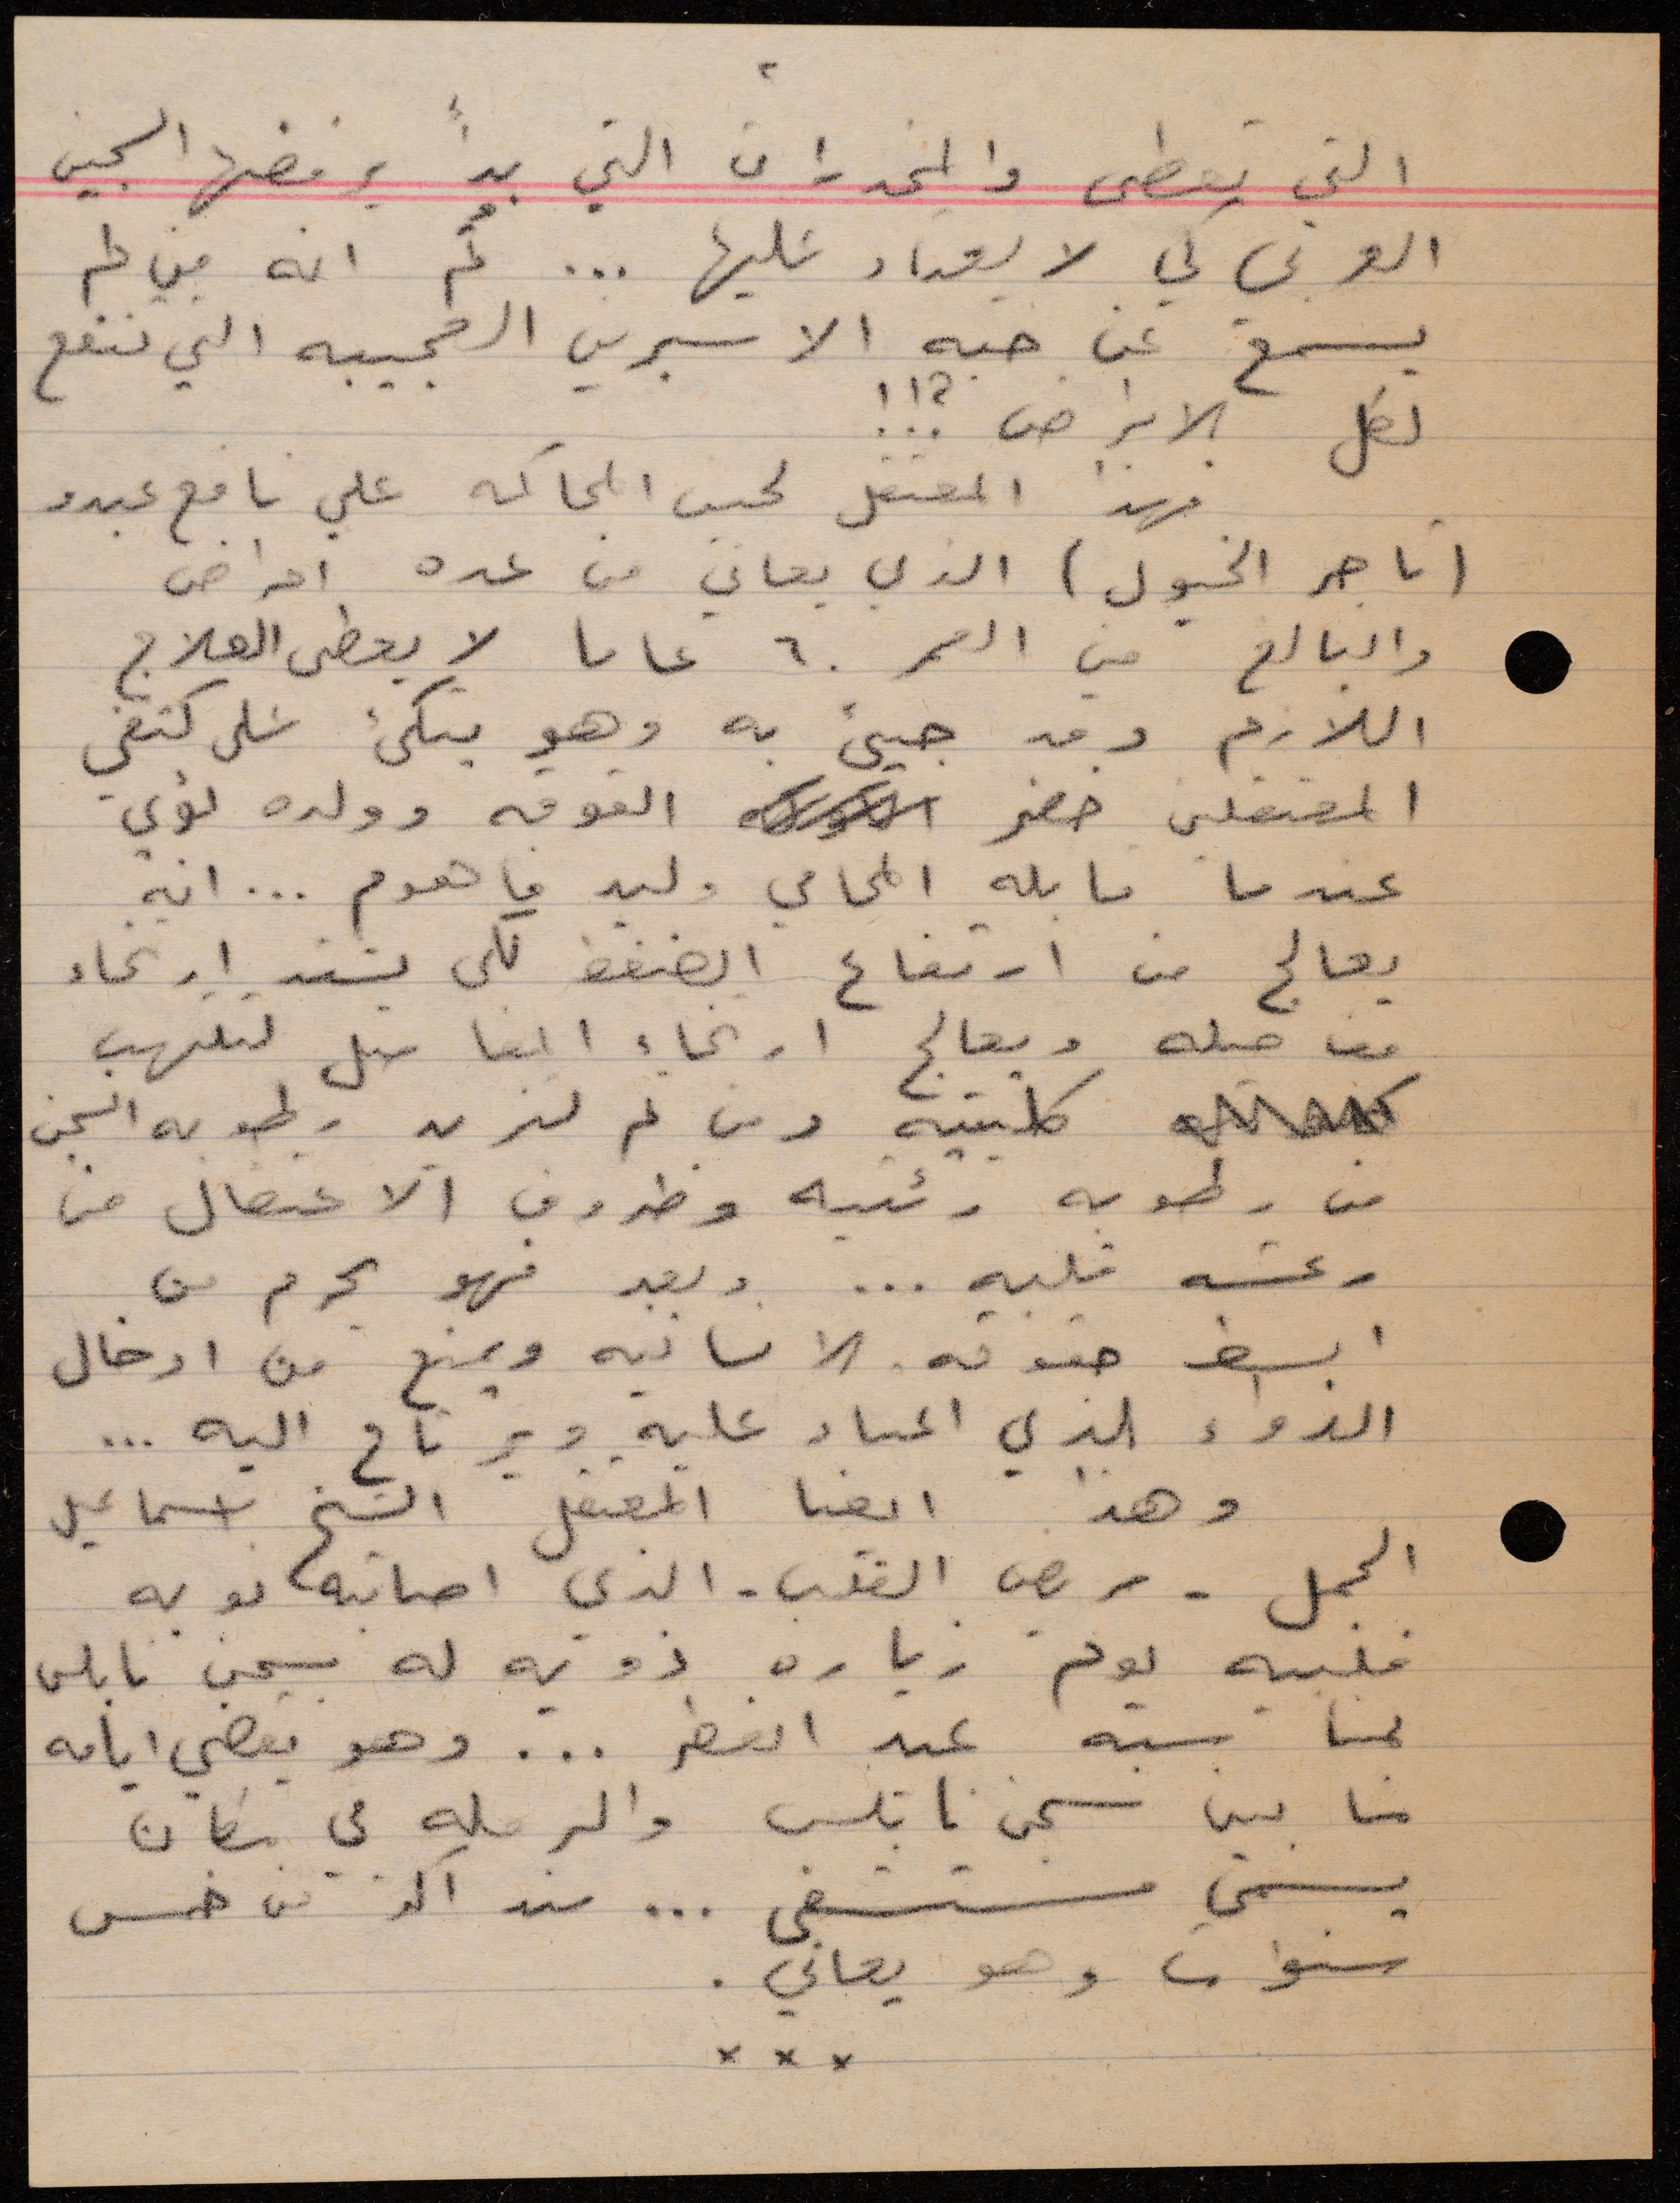 ٢
التي تعطى والمخدرات التي بدأ يرفضها السجين
العربي كي لا يعتاد عليها ... ثم انه من لم
يسمع عن حبه الاسبرين العجيبه التي تنفع
لكل الامراض ؟!!
فهذا المعتقل لحين المحاكمه علي نافع عبدو
(تاجر الخيول) الذي يعاني من عده امراض
والبالغ من العمر ٦٠ عاما لا يعطى العلاج
اللازم وقد جيئ به وهو يتكئ على كتفي
المعتقلين خضر القوقه وولده لؤي
عندما قابله المحامي وليد فاهوم ... انه
يعالج من ارتفاع الضغط لكي يشتد ارتخاء
مفاصله ويعالج ارتخاء المفاصل لتلتهب
كليتيه ومن ثم لتزيد رطوبه السجن
من رطوبه رئتيه وظروف الاعتقال من
رعشه قلبه ... وبعد فهو يحرم من
ابسط حقوقه الانسانيه ويمنع من ادخال
الدواء الذي اعتاد عليه ويرتاح اليه ...
وهذا ايضا المعتقل الشيخ اسماعيل
الجمل - مريض القلب - الذي اصابته نوبه
قلبيه يوم زياره ذويه له بسجن نابلس
بمناسبه عيد الفطر ... وهو يقضي ايامه
ما بين سجن نابلس والرمله في مكان
يسمى مستشفى ... منذ اكثر من خمس
سنوات وهو يعاني .
× × ×